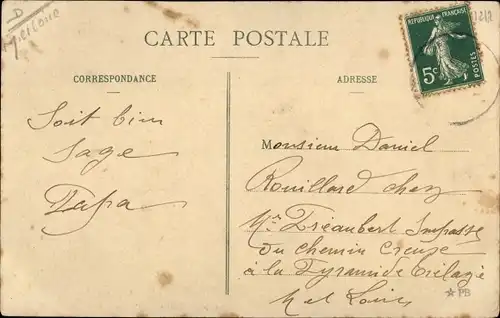 D
M et Loire
CARTE POSTALE
RÉPUBLIQUE FRANÇAISE
5c
POSTES
CORRESPONDANCE
ADRESSE
Soit bien
Sage
Papa
Monsieur Daniel
Rouillard chez
Mr Dréaubert Impasse
du Chemin Creuse
à la Pyramide Trélazé
M et Loire
PB